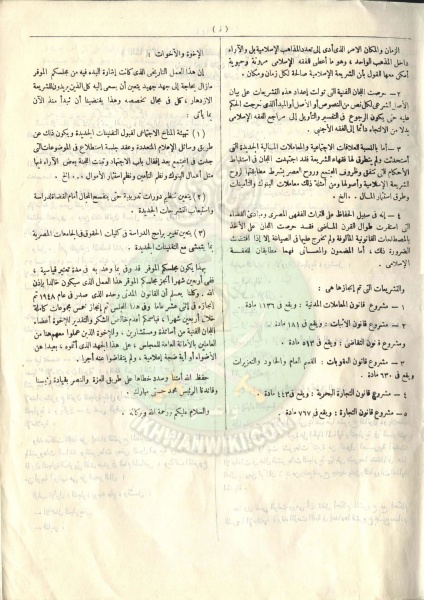 ( د )
الزمان والمكان الامر الذى أدى إلى تعدد المذاهب الإسلامية بل والآراء
داخل المذهب الواحد ، وهو ما أعطى للفقه الإسلامى مرونة وحيوية
أمكن معها القول بأن الشريعة الإسلامية صالحة لكل زمان ومكان .
٢ — حرصت اللجان الفنية التى تولت إعداد هذه التشريعات على بيان
الأصل الشرعى لكل نص من النصوص أو الأصل أو المبدأ الذى خرجت الحكم
عليه حتى يكون الرجوع فى التفسير والتأويل إلى مراجع الفقه الإسلامى
بدلا من الالتجاء دائما إلى الفقه الأجنبى .
٣ — أما بالنسبة للعلاقات الاجتماعية والمعاملات المالية الجديدة التى
استحدثت ولم يتطرق لها فقهاء الشريعة فقد اجتهدت اللجان فى استنباط
الأحكام التى تتفق وظروف المجتمع وروح العصر بشرط مطابقتها لروح
الشريعة الإسلامية وأصولها ومن أمثلة ذلك معاملات البنوك والتأمينات
وطرق استثمار المال . . الخ .
٤ — إنه فى سبيل الحفاظ على التراث الفقهى المصرى ومبادئ القضاء
التى استقرت طوال القرن الماضى فقد حرصت اللجان على الأخذ
بالمصطلحات القانونية المألوفة ولم تخرج عليها فى الصياغة إلا إذا اقتضت
الضرورة ذلك ، أما المضمون والمعانى فهما مطابقان للفقه
الإسلامى .
والتشريعات التى تم إنجازها هى :
١ — مشروع قانون المعاملات المدنية : ويقع فى ١١٣٦ مادة .
٢ — مشروع قانون الأثبات : ويقع فى ١٨١ مادة .
وقانون التقاضى : ويقع فى ٥١٣ مادة .
٣ — مشروع قانون العقوبات : القسم العام والحدود والتعزيرات
ويقع فى ٦٣٠ مادة .
٤ — مشروع قانون التجارة البحرية : ويقع فى ٤٤٣ مادة .
٥ — مشروع قانون التجارة : ويقع فى ٧٦٧ مادة .
الإخوة والأخوات :
إن هذا العمل التاريخى الذى كانت إشارة البدء فيه من مجلسكم الموقر
مازال بحاجة إلى جهد جهيد يتعين أن يسعى إليه كل الذين يريدون للشريعة
الازدهار ، كل فى مجال تخصصه وهذا يقتضينا أن نبدأ منذ الآن
بما يأتى :
( ١ ) تهيئة المناخ الاجتماعى لقبول التقنينات الجديدة ويكون ذلك عن
طريق وسائل الإعلام المتعددة وعقد جلسة استطلاع فى الموضوعات التى
جدت فى المجتمع بعد إقفال باب الاجتهاد وتبنت اللجنة بعض الآراء فيها
مثل أعمال البنوك ونظم التأمين ونظم استثمار الأموال .. الخ .
( ٢ ) يتعين تنظيم دورات تدريبية حتى ينفسح المجال أمام القضاة لدراسة
واستيعاب التشريعات الجديدة .
( ٣ ) يتعين تغيير برامج الدراسة فى كليات الحقوق فى الجامعات المصرية
بما يتمشى مع التقنينات الجديدة .
بهذا يكون مجلسكم الموقر قد وفى بما وعد به فى مدة تعتبر قياسية ،
ففى أربعين شهرا أنجز مجلسكم الموقر هذا العمل الذى سيكون خالدا بإذن
الله . وكلنا يعلم أن القانون المدنى وحده الذى صدر فى عام ١٩٤٨ تم
إنجازه فى اثنى عشر عاما وفى هذا المجلس تم إنجاز خمس مجموعات كاملة
خلال أربعين شهرا ، فباسمكم أقدم خالص الشكر والتقدير للإخوة أعضاء
اللجان الفنية من أساتذة ومستشارين ، والإخوة الذين عملوا معهم من
العاملين بالأمانة العامة للمجلس ، على هذا الجهد الذى أتموه ، بعيدا عن
الأضواء أو أية ضجة إعلامية ، ولم يتقاضوا عنه أجرا .
حفظ الله أمتنا وسدد خطاها على طريق العزة والنصر بقيادة رئيسنا
وقائدنا الرئيس محمد حسنى مبارك .
والسلام عليكم ورحمة الله وبركاته .
IKHWANWIKI.COM